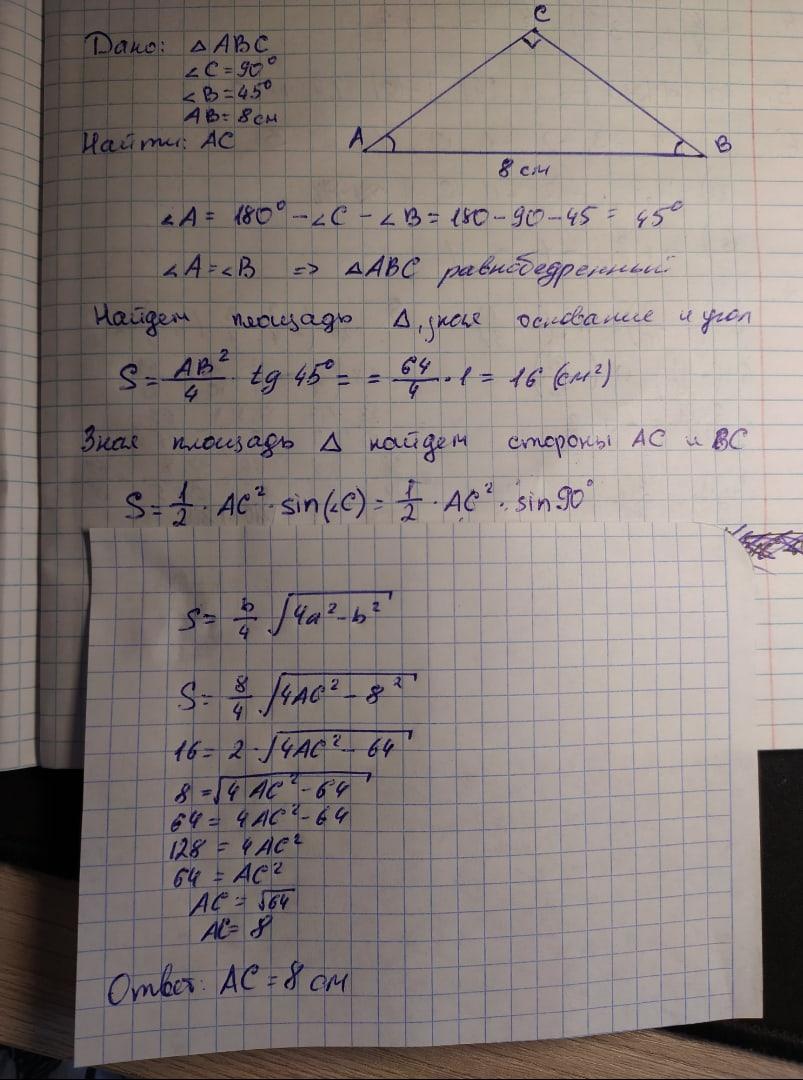 Дано: △ABC
∠C = 90°
∠B = 45°
AB = 8 см
Найти: AC
C
A
B
8 см
∠A = 180° - ∠C - ∠B = 180 - 90 - 45 = 45°
∠A = ∠B => △ABC равнобедренный
Найдем площадь △, зная основание и угол
S = AB²/4 · tg 45° = = 64/4 · 1 = 16 (см²)
Зная площадь △ найдем стороны AC и BC
S = 1/2 · AC² · sin(∠C) = 1/2 · AC² · sin 90°
S = b/4 √(4a² - b²)
S = 8/4 √(4AC² - 8²)
16 = 2 · √(4AC² - 64)
8 = √(4AC² - 64)
64 = 4AC² - 64
128 = 4AC²
64 = AC²
AC = √64
AC = 8
Ответ: AC = 8 см